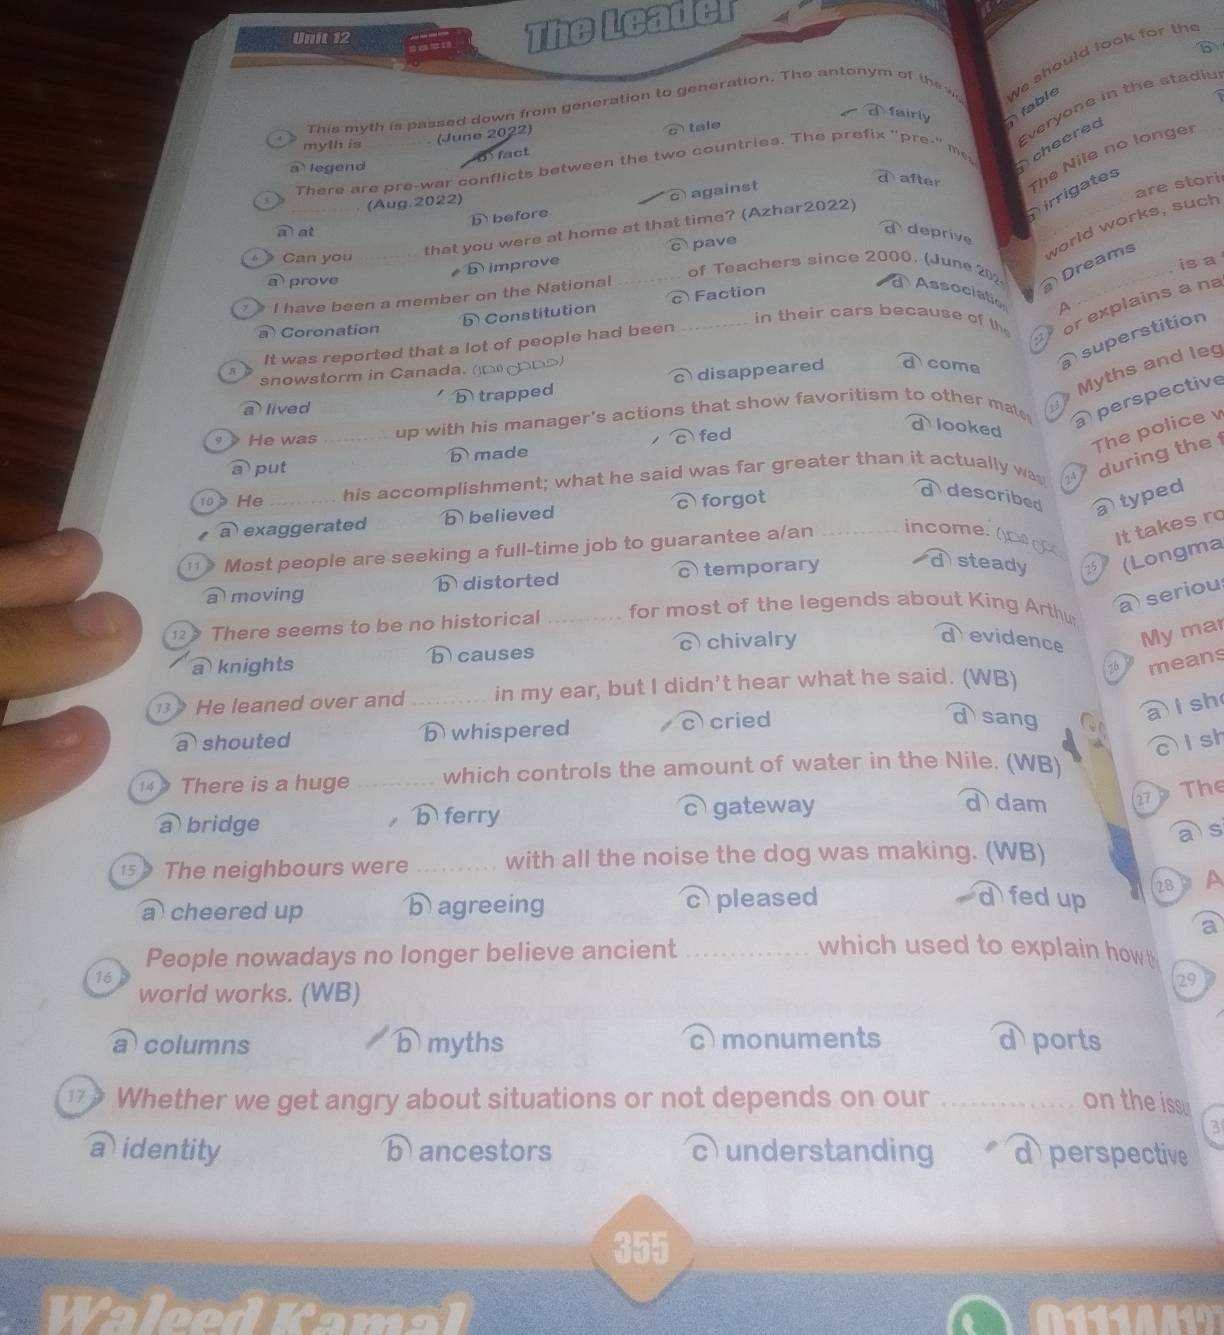 Unit 12
The Leader
4 This myth is passed down from generation to generation. The antonym of the
myth is ........ (June 2022)
a legend b fact c tale d fairly
5 There are pre-war conflicts between the two countries. The prefix "pre-"
........ . (Aug.2022)
a at b before c against d after
6 Can you ........ that you were at home at that time? (Azhar2022)
a prove b improve c pave d deprive
7 I have been a member on the National ........ of Teachers since 2000. (June
a Coronation b Constitution c Faction d Association
8 It was reported that a lot of people had been ........ in their cars because of
snowstorm in Canada.
a lived b trapped c disappeared d come
9 He was ........ up with his manager's actions that show favoritism to other
a put b made c fed d looked
10 He ........ his accomplishment; what he said was far greater than it actually
a exaggerated b believed c forgot d described
11 Most people are seeking a full-time job to guarantee a/an ........ income.
a moving b distorted c temporary d steady
12 There seems to be no historical ........ for most of the legends about King
a knights b causes c chivalry d evidence
13 He leaned over and ........ in my ear, but I didn't hear what he said. (WB)
a shouted b whispered c cried d sang
14 There is a huge ........ which controls the amount of water in the Nile. (WB)
a bridge b ferry c gateway d dam
15 The neighbours were ........ with all the noise the dog was making. (WB)
a cheered up b agreeing c pleased d fed up
16 People nowadays no longer believe ancient ........ which used to explain how
world works. (WB)
a columns b myths c monuments d ports
17 Whether we get angry about situations or not depends on our ........ on the
a identity b ancestors c understanding d perspective
355
Waleed Kamal
We should look for the
a fable b
Everyone in the
a cheered
The Nile no longer
a irrigates
........ are
world works, such
a Dreams
A ........ is a
22 or explains a
a superstition
23 Myths and
a perspective
The police
24 during the
a typed
It takes
25 (Longma
a
My
26 means
a I
c I
27 The
a
28 A
a
29